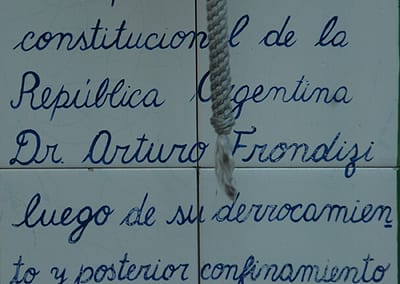 constitucional de la
República Argentina
Dr. Arturo Frondizi
luego de su derrocamien
to y posterior confinamiento